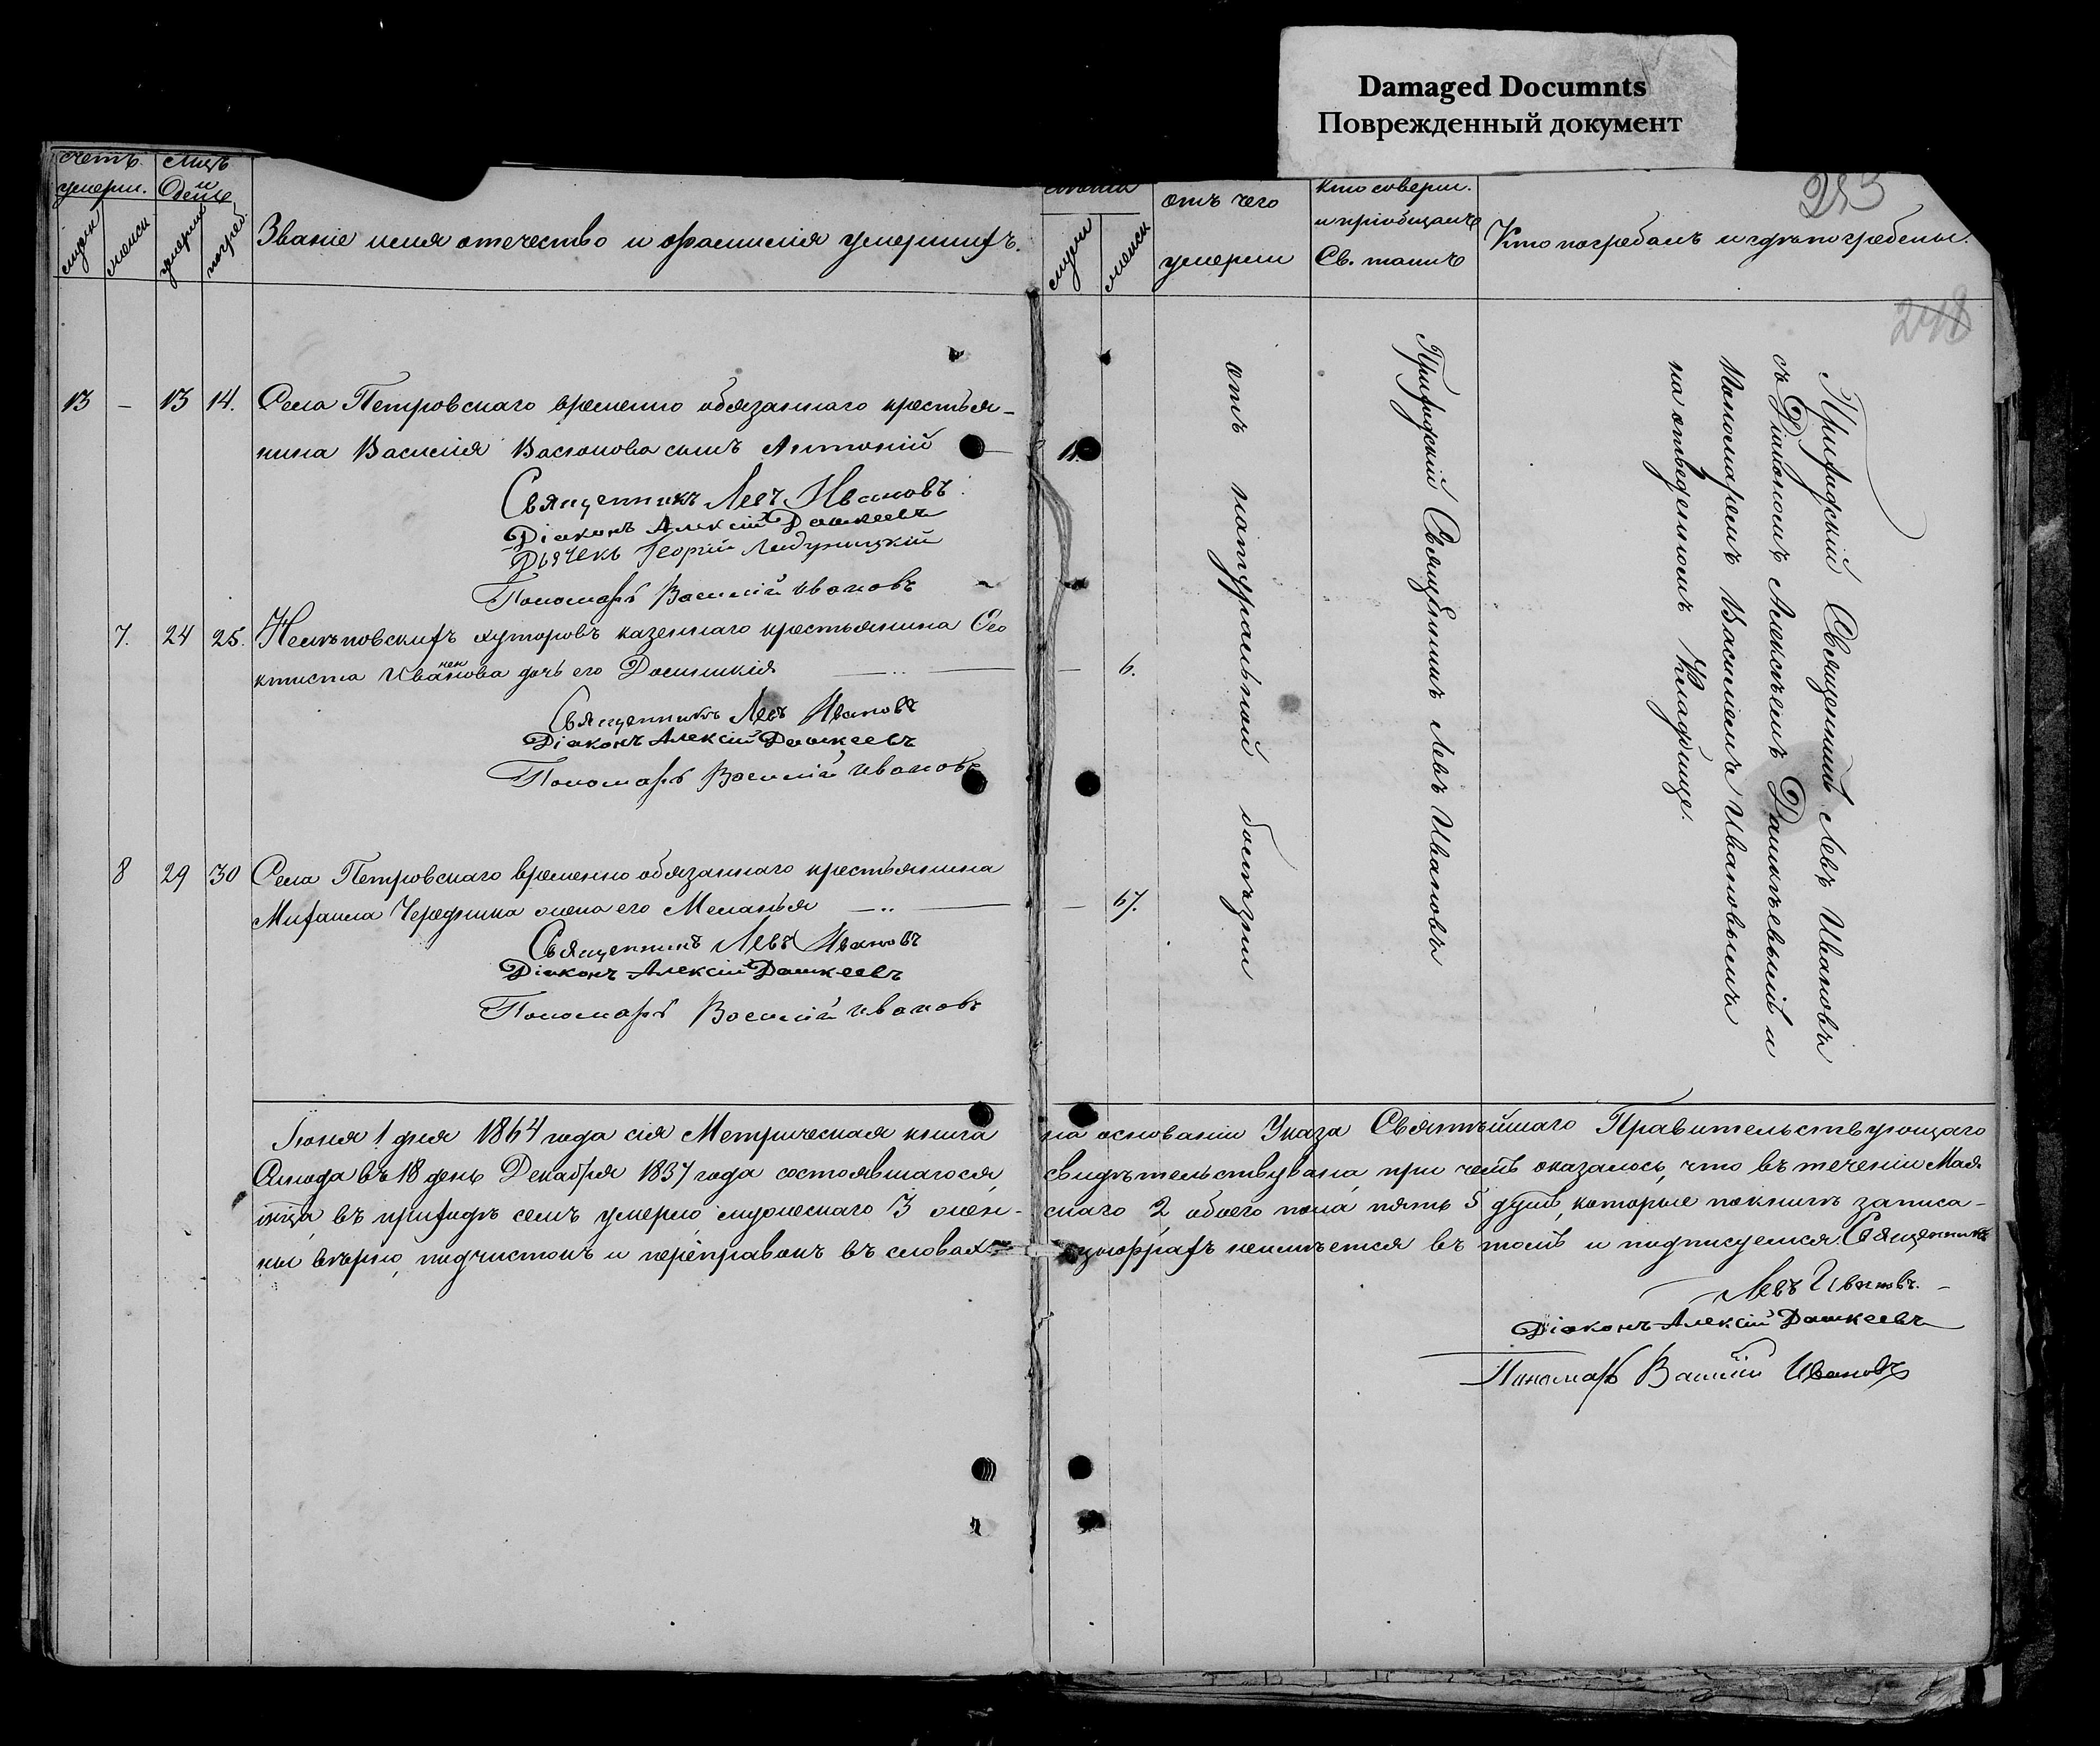 Damaged Documnts
Поврежденный документ
счетъ
умерш.
Мѣц. и
День
мужск
женск
умерших
погреб.
Званіе имя отечество и фамилія умершихъ.
мужск
женск
отъ чего
умерли
кто соверш.
и пріобщалъ
Св. таинъ
Кто погребалъ и гдѣ погребены.
248
13 — 13 14. Села Петровскаго временно обязаннаго крестья-
нина Василія сынъ Антоній
Священникъ Левъ Ивановъ
Діаконъ Алексій Дашкеевъ
Дьячекъ Георгій
Пономарь Василій Ивановъ
7. 24 25. хуторовъ казеннаго крестьянина Ѳео
ктиста Иваненкова дочь его Домникія — 6.
Священникъ Левъ Ивановъ
Діаконъ Алексій Дашкеевъ
Пономарь Василій Ивановъ
8 29 30 Села Петровскаго временно обязаннаго крестьянина
Михаила Чередника жена его Меланья — 67.
Священникъ Левъ Ивановъ
Діаконъ Алексій Дашкеевъ
Пономарь Василій Ивановъ
отъ натуральной болѣзни
Приходскій Священникъ Левъ Ивановъ
Приходскій Священникъ Левъ Ивановъ
съ Діакономъ Алексѣемъ Дашкѣевымъ и
Пономаремъ Василіемъ Ивановымъ
на отведенномъ Кладбище.
Іюня 1 дня 1864 года сія Метрическая книга на основаніи Указа Святѣйшаго Правительствующаго
Синода въ 18 день Декабря 1837 года состоявшагося, свидѣтельствувана, при чемъ оказалось, что въ теченіи Мая
мѣсяца въ приходѣ семъ умерло мужескаго 3 жен- скаго 2, обоего пола пять 5 душъ, которые по книгѣ записа-
ны вѣрно, подчистокъ и переправокъ въ словах и цыфрахъ неимѣется въ томъ и подписуемся. Священникъ
Левъ Ивановъ.
Діаконъ Алексій Дашкеевъ
Пономарь Василій Ивановъ